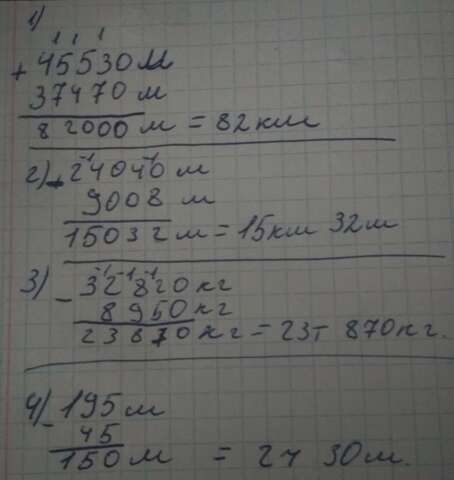 1)
+ 45530 м
37470 м
82000 м = 82 км
2) - 24040 м
9008 м
15032 м = 15 км 32 м
3) - 32820 кг
8950 кг
23870 кг = 23 т 870 кг.
4) - 195 м
45
150 м = 2 ч 30 м.